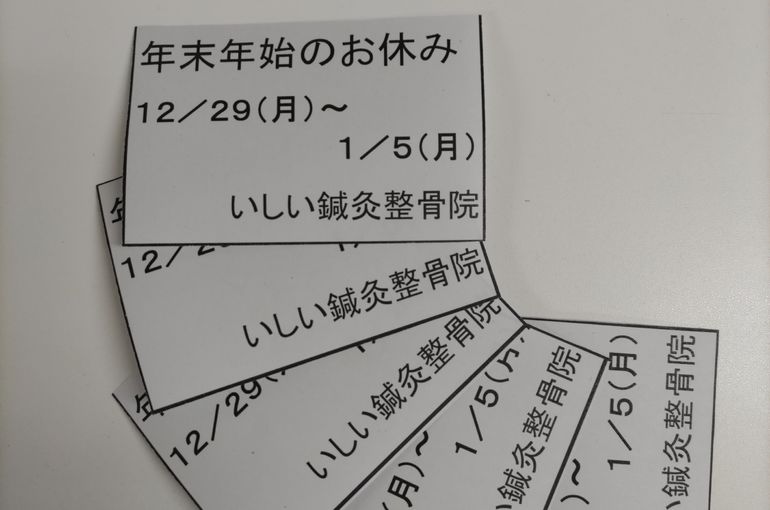 年末年始のお休み
12／29（月）～
1／5（月）
いしい鍼灸整骨院
12／2
いしい鍼灸整骨院
12／29（
いしい鍼灸整骨院
（月）～
1／5（月）
い鍼灸整骨院
）～
1／5（月）
い鍼灸整骨院